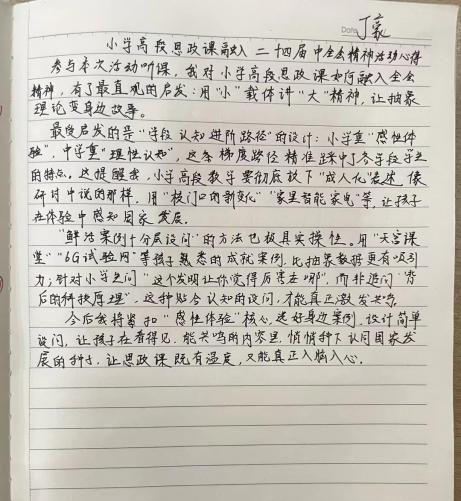 Date 丁豪
小学高段思政课融入二十四届中全会精神活动心得
参与本次活动听课，我对小学高段思政课如何融入全会
精神，有了最直观的启发：用“小”载体讲“大”精神，让抽象
理论变身边故事。
最受启发的是“学段认知进阶路径”的设计：小学重“感性体
验”，中学重“理性认知”，这条梯度路径精准踩中了各学段学生
的特点。这提醒我，小学高段教学要彻底放下“成人化”表述，像
研讨中说的那样，用“校门口的新变化”“家里智能家电”等，让孩子
在体验中感知国家发展。
“鲜活案例+分层设问”的方法也极具实操性。用“天宫课
堂”“6G试验网”等孩子熟悉的成就案例，比抽象数据更有吸引
力；针对小学生问“这个发明让你觉得厉害在哪”，而非追问“背
后的科技原理”，这种贴合认知的设问，才能真正激发共鸣。
今后我将紧扣“感性体验”核心，选好身边案例，设计简单
设问，让孩子在看得见、能共鸣的内容里，悄悄种下认同国家发
展的种子，让思政课既有温度，又能真正入脑入心。